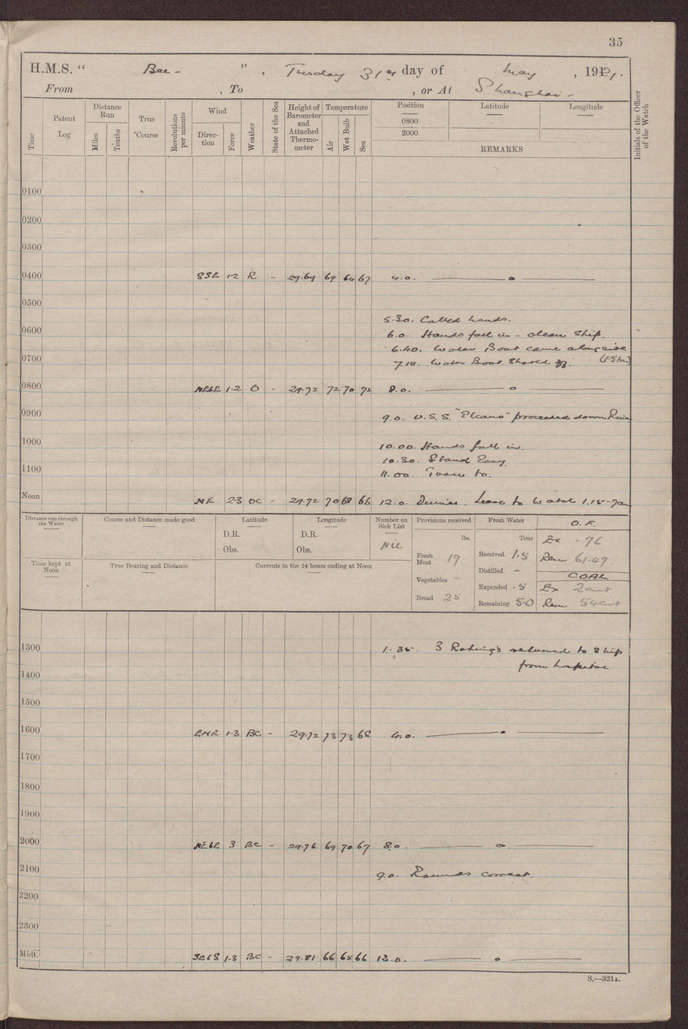 35
H.M.S. " Bee - " , Tuesday 31st day of May , 1921.
From , To , or At Shanghai -
Time Patent Log Distance Run Miles Tenths True Course Revolutions per minute Wind Direction Force Weather State of the Sea Height of Barometer and Attached Thermometer Temperature Air Wet Bulb Sea Position 0800 2000 Latitude Longitude REMARKS Initials of the Officer of the Watch
0100
0200
0300
0400 SSE 1-2 R - 29.69 69 64 67 4.0. — o —
0500
5.30. Called hands.
0600 6.0 Hands fell in - clean Ship.
6.40. Water Boat came alongside
0700 7.10. Water Boat Shoved off.
0800 NE'E 1-2 O - 29.72 72 70 72 8.0. — o —
0900 9.0. U.S.S. "Elcano" proceeded down River
1000 10.00. Hands fell in.
10.30. Stand Easy.
1100 11.00. to.
Noon NE 2-3 OC - 29.72 70 68 66 12.0. Dinner. Leave to Watch 1.15-7am
Distance run through the Water Course and Distance made good Latitude Longitude Number on Sick List Provisions received Fresh Water O.F.
D.R. D.R. lbs. Tons Ex - .76
Obs. Obs. Nil Fresh Meat 19 Received 1.5 Rem 61.49
Time kept at Noon True Bearing and Distance Currents in the 24 hours ending at Noon Vegetables - Distilled - COAL
Expended .5 Ex 2cwt
Bread 25 Remaining 5.0 Rem 54cwt
1300 1.35. 3 Ratings returned to Ship
from hospital
1400
1500
1600 ENE 1-3 BC - 29.72 73 73 68 4.0. — o —
1700
1800
1900
2000 NE'E 3 BC - 29.76 69 70 67 8.0. — o —
2100 9.0. Rounds correct.
2200
2300
Mid. 1-3 BC - 29.81 66 64 66 12.0. — o —
S.—321A.